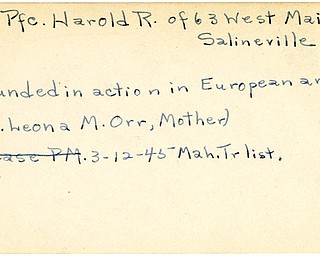 Pfc. Harold R. of 63 West Mai
Salineville
unded in action in European ar
. Leona M. Orr, Mother)
ease PM. 3-12-45 Mah. Tr list.